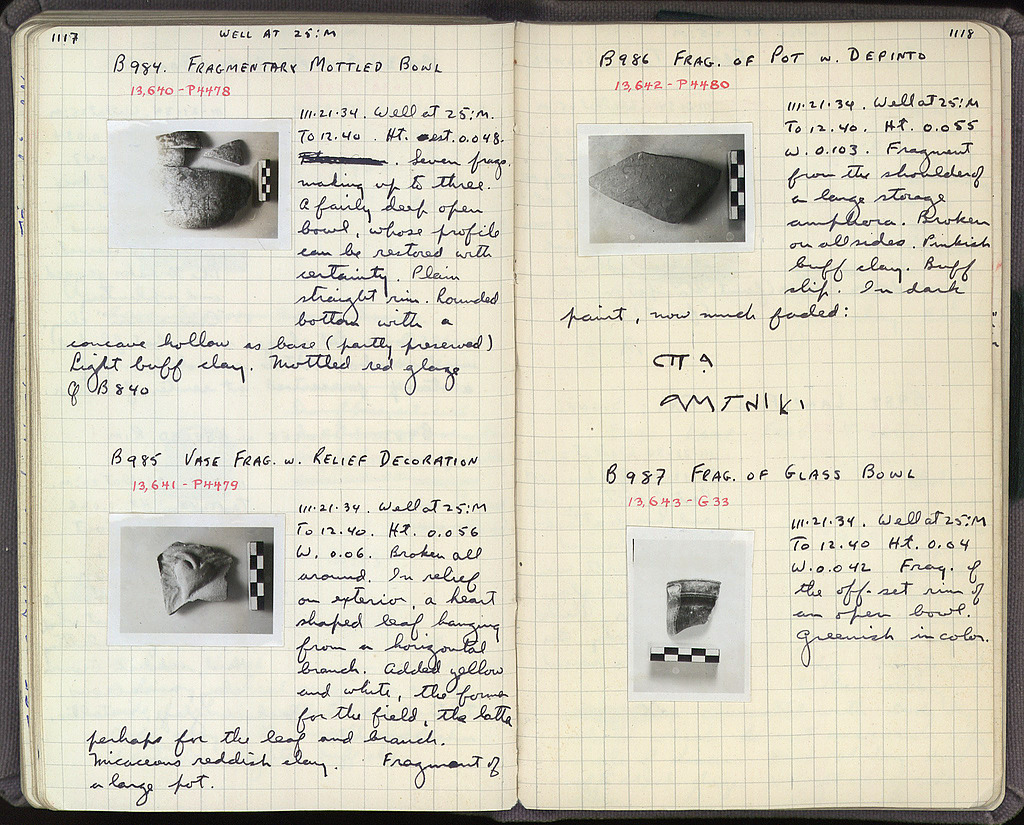 1117
WELL AT 25:M
B984. FRAGMENTARY MOTTLED BOWL
13,640 - P4478
III.21.34. Well at 25:M.
To 12.40. Ht. est. 0.048.
Seven frags.
making up to three.
A fairly deep open
bowl, whose profile
can be restored with
certainty. Plain
straight rim. Rounded
bottom with a
concave hollow as base (partly preserved)
Light buff clay. Mottled red glaze
Cf B840
B985 VASE FRAG. W. RELIEF DECORATION
13,641 - P4479
III.21.34. Well at 25:M
To 12.40. Ht. 0.056
W. 0.06. Broken all
around. In relief
on exterior, a heart
shaped leaf hanging
from a horizontal
branch. Added yellow
and white, the former
for the field, the latte
perhaps for the leaf and branch.
Micaceous reddish clay. Fragment of
a large pot.
1118
B986 FRAG. OF POT W. DEPINTO
13,642 - P4480
III.21.34. Well at 25:M
To 12.40. Ht. 0.055
W. 0.103. Fragment
from the shoulder of
a large storage
amphora. Broken
on all sides. Pinkish
buff clay. Buff
slip. In dark
paint, now much faded:
B987 FRAG. OF GLASS BOWL
13,643 - G33
III.21.34. Well at 25:M
To 12.40 Ht. 0.04
W. 0.042 Frag. of
the off-set rim of
an open bowl.
Greenish in color.